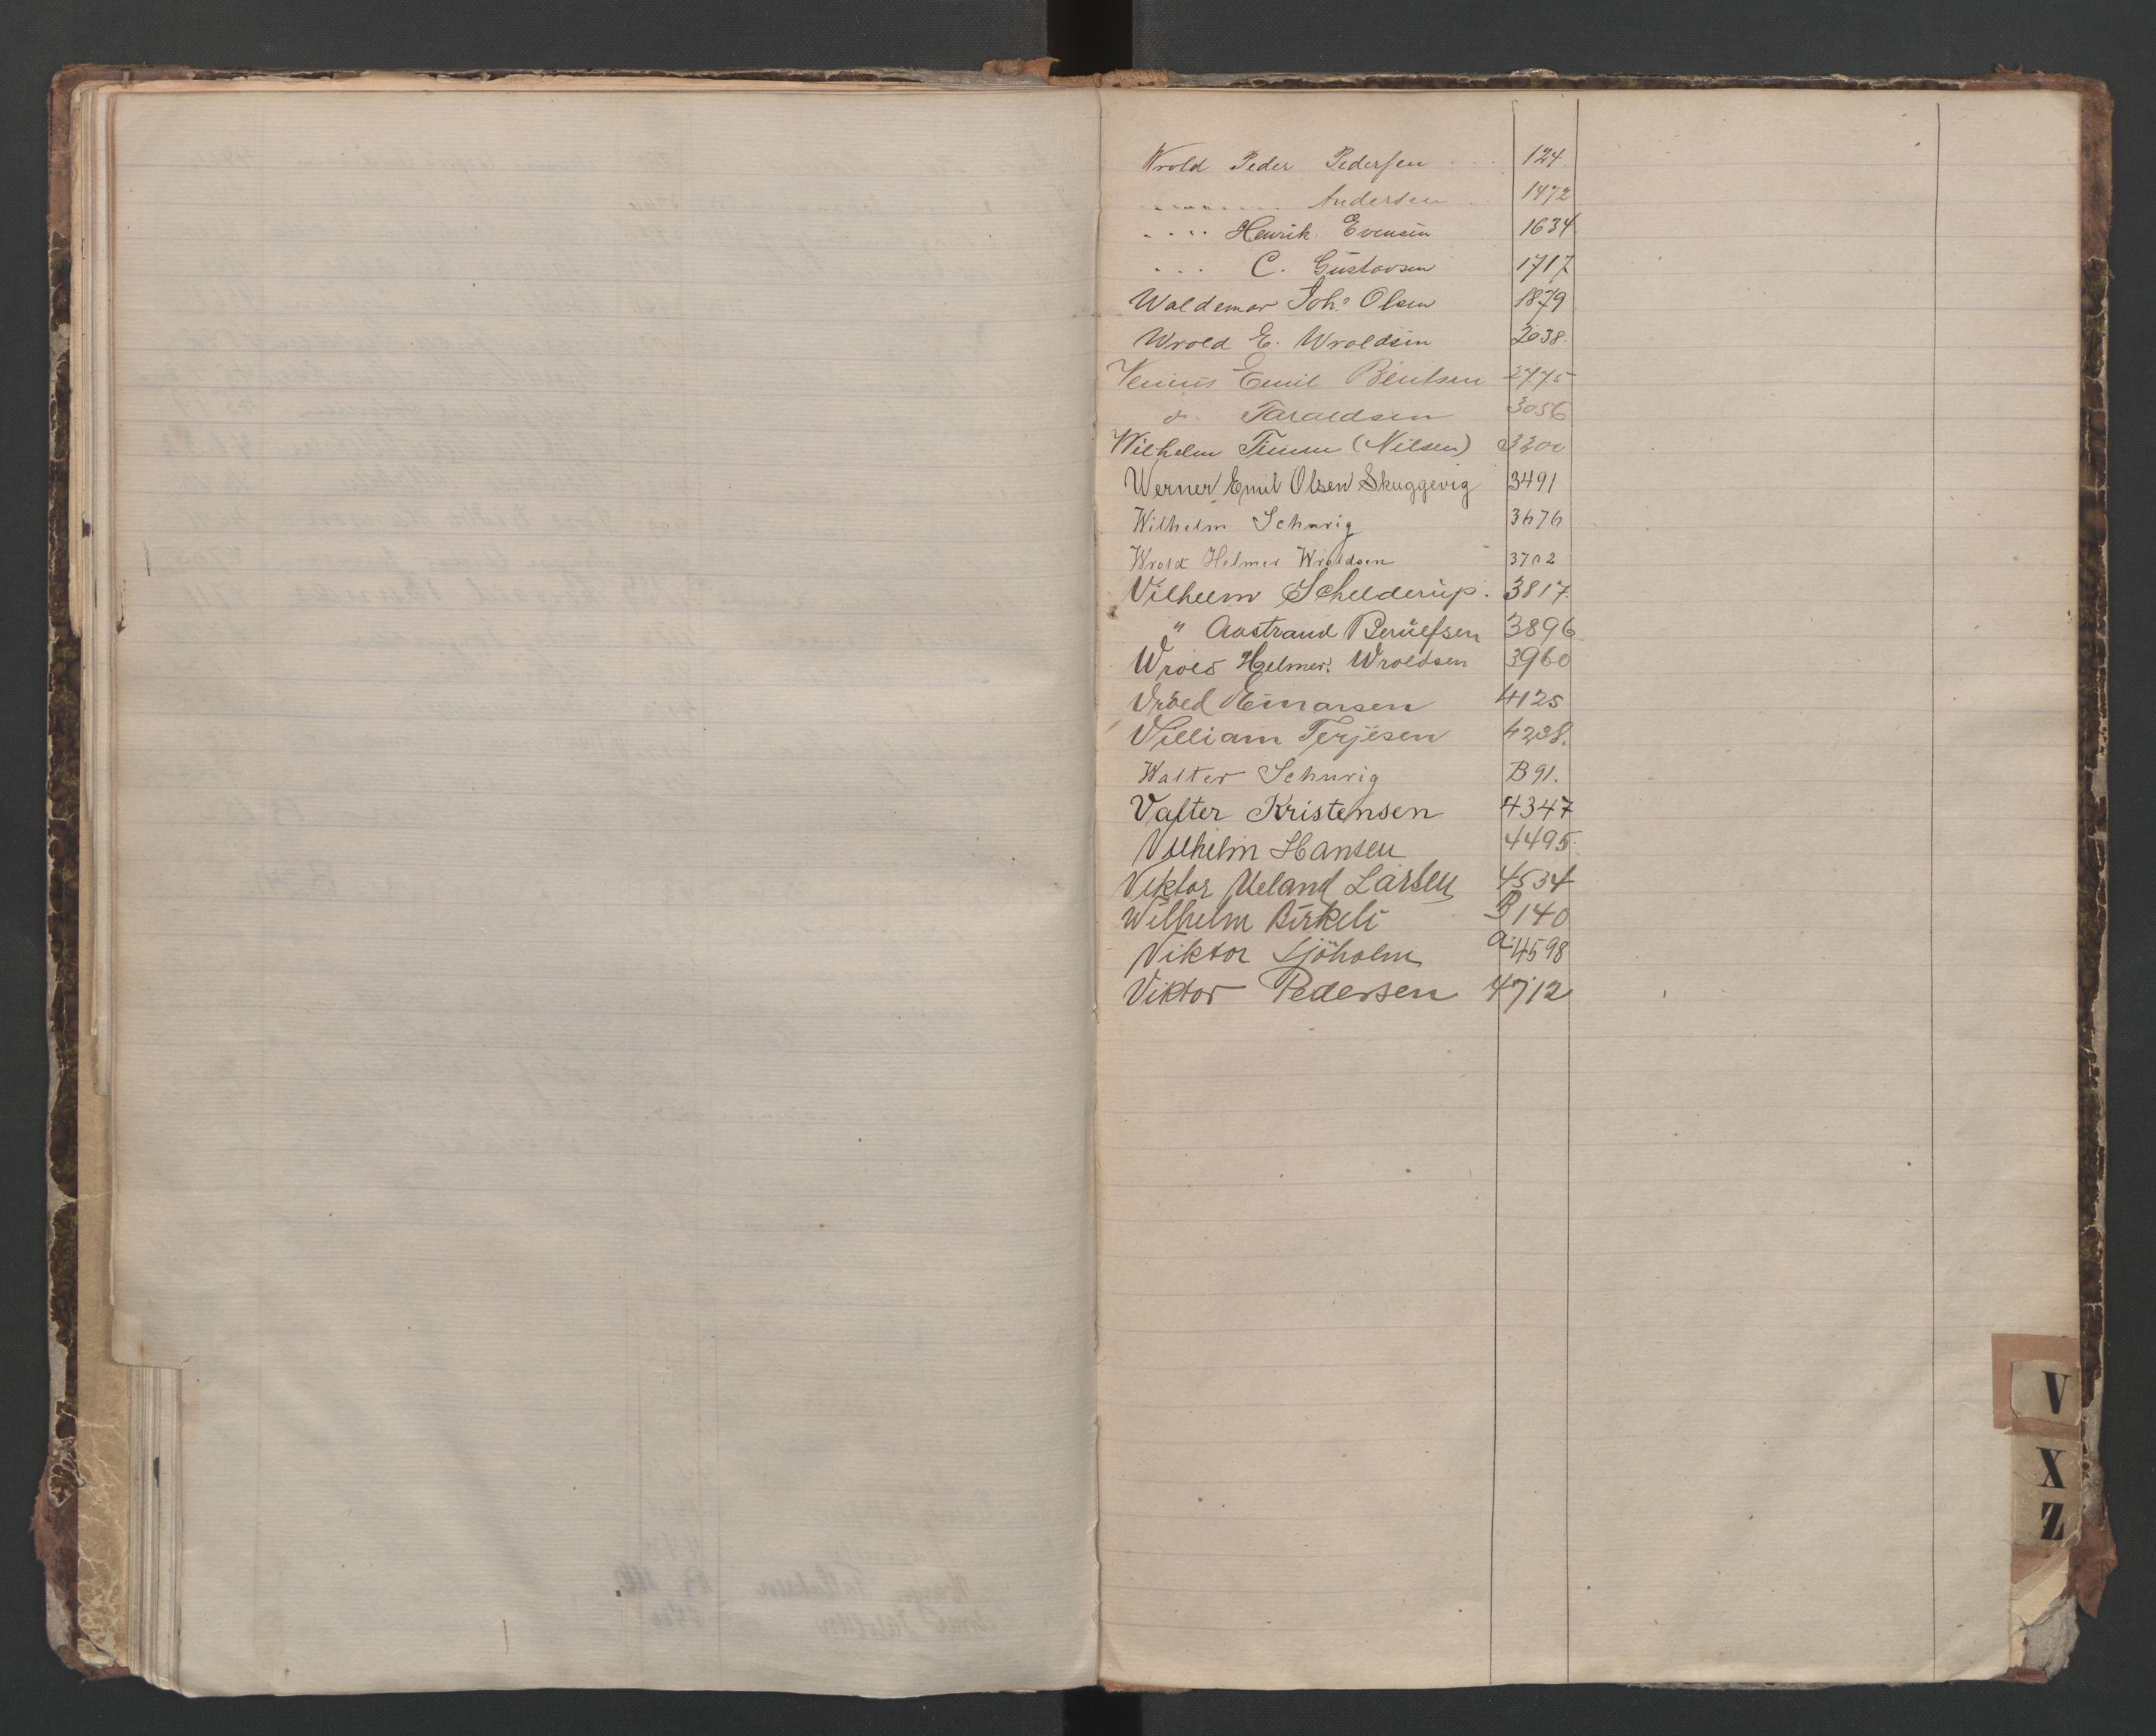 Wrold Peder Pedersen 124
........ Andersen 1472
.... Henrik Evensen 1634
... C. Gustavsen 1717
Waldemar Joh: Olsen 1879
Wrold E. Wroldsen 2038.
Venius Emil Bentsen 2775
do Taraldsen 3056
Wilhelm Timm (Nilsen) 3200
Werner Emil Olsen Skuggevig 3491
Wilhelm Schurig 3676
Wrold Helmer Wroldsen 3702
Vilhelm Schelderup. 3817.
" Aastrand Berulfsen 3896.
Wrold Helmer. Wroldsen 3960
Vrold Einarsen 4125
William Terjesen 4238.
Walter Schurig B 91.
Valter Kristensen 4347
Vilhelm Hansen 4495.
Viktor Ueland Larsen 4534
Wilhelm Birkeli B 140
Viktor Sjöholm a. 4598
Viktor Pedersen 4712
V
X
Z